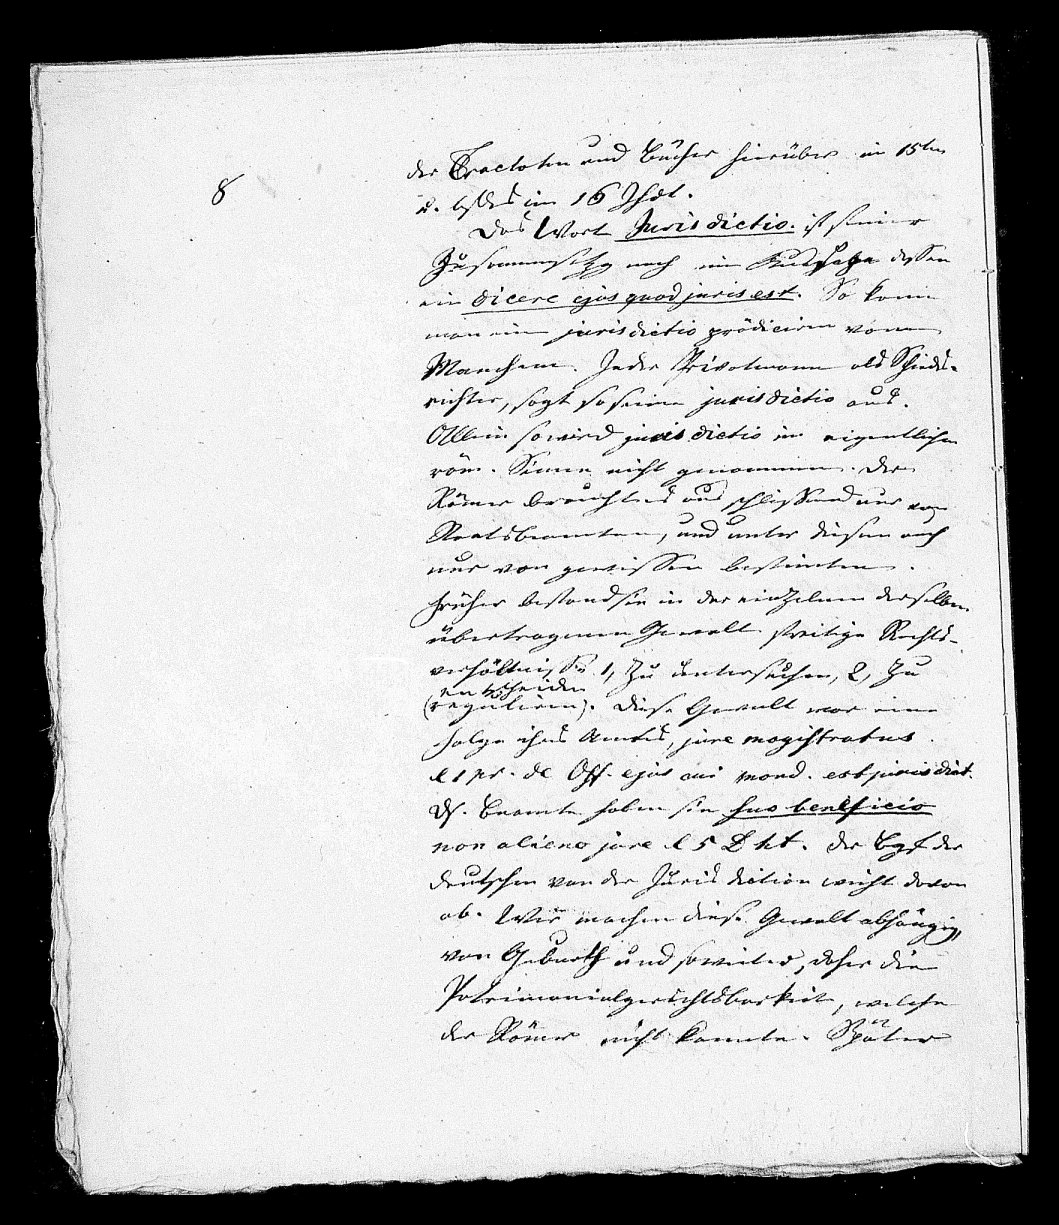 8
der Tractaten und Bücher hierüber im 15ten
u. im 16 Jhdt.
Das Wort Jurisdictio. ist seiner
Zusammensetzg nach im dessen
ein dicere ejus quod juris est. So kann
man ein jurisdictio prädiciren von
Manchem. Jeder Privatmann als Schieds-
richter, sagt so seine jurisdictio aus.
Allein so wird jurisdictio im eigentlichen
röm. Sinne nicht genommen. Die
Römer brauchten es ausschliessend nur von
Staatsbeamten, und unter diesen auch
nur von gewissen bestimten.
Früher bestand sie in der einzelnen derselben
übertragenen Gewalt streitige Rechts-
verhältnisse 1, zu untersuchen, 2, zu
entscheiden
(reguliren). Diese Gewalt war eine
Folge ihres Amtes, jure magistratus
l 1 pr. de Off. ejus cui mand. est jurisdict.
Ds. Beamte haben sie suo beneficio
non alieno jure l 5 D h t. Der Bgf der
Deutschen von der Jurisdiction weicht davon
ab. Wir machen diese Gewalt abhängig,
von Geburth und so weiter, daher die
Patrimonialgerichtsbarkeit, welche
die Römer nicht kannten. Später